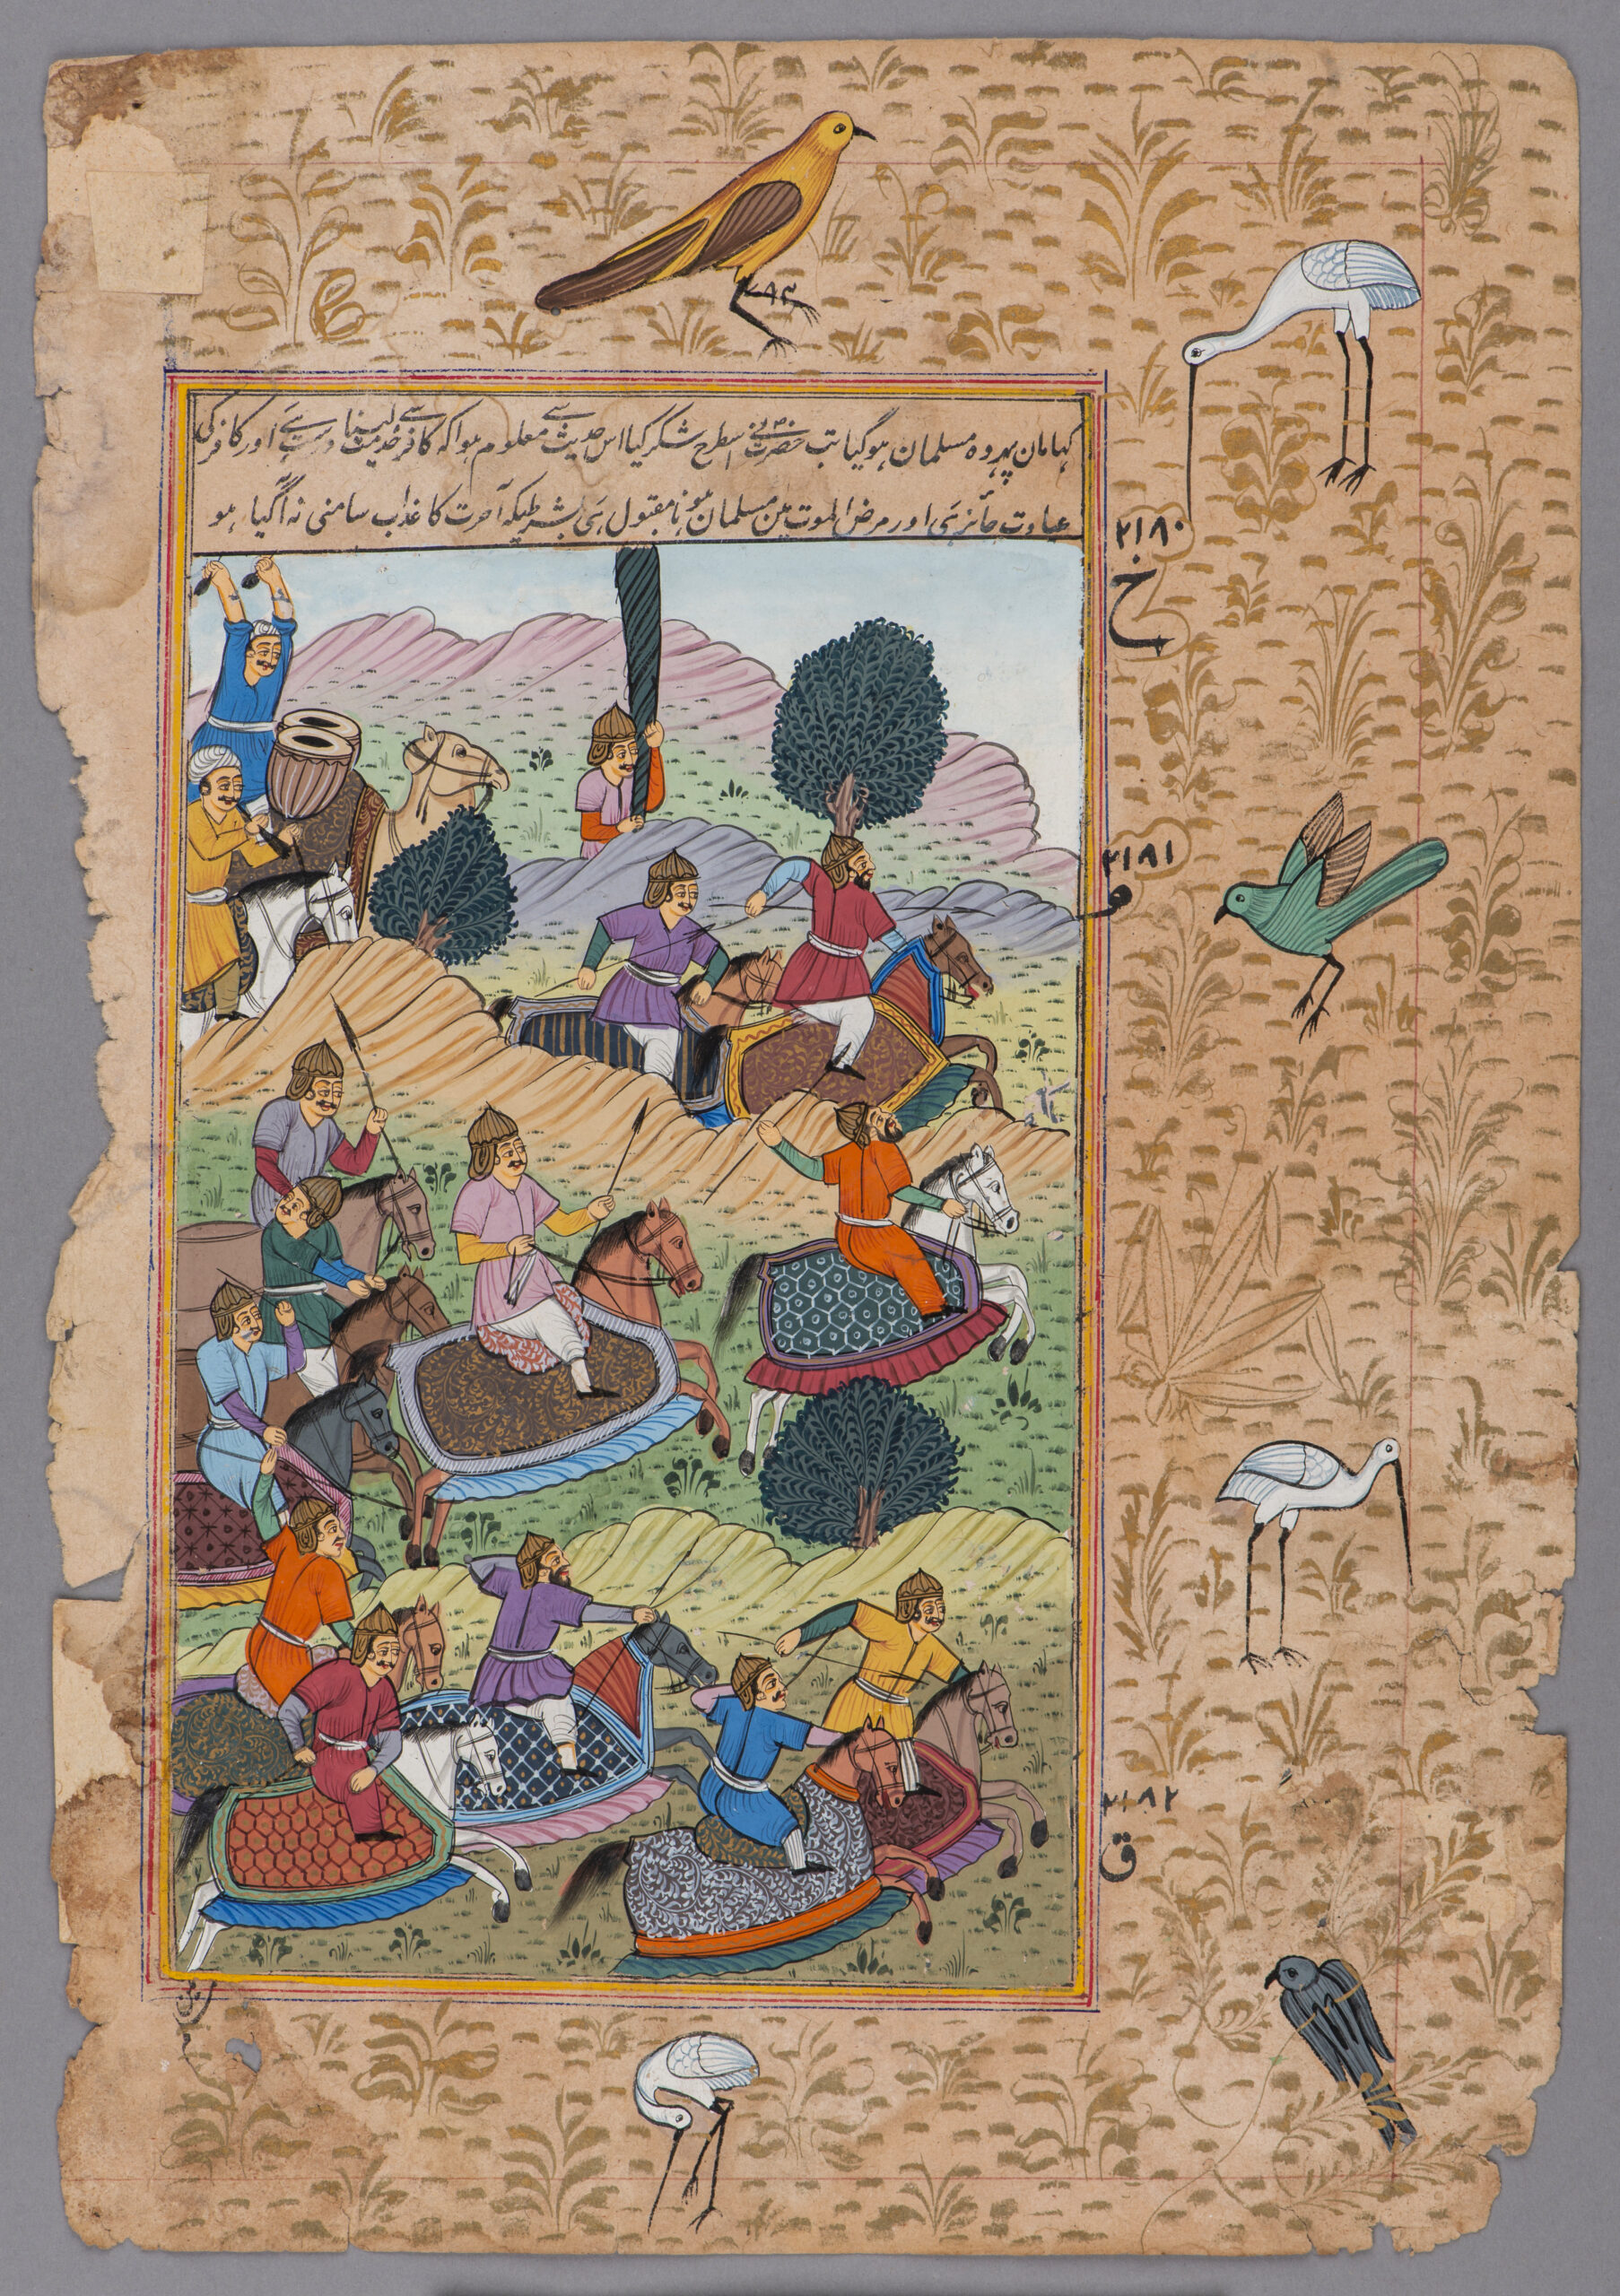 ۲۹۳
کہا مان پھر وہ مسلمان ہوگیا تب حضرتؐ نے اسطرح شکر کیا اس حدیث سے معلوم ہوا کہ کافر سے خدمت لینا درست ہے اور کافر کی
عیادت جائز ہی اور مرض الموت مین مسلمان ہونا مقبول ہی بشرطیکہ آخرت کا عذاب سامنی نہ آگیا ہو
۲۱۸۰
خ
۲۱۸۱
و
۲۱۸۲
ق